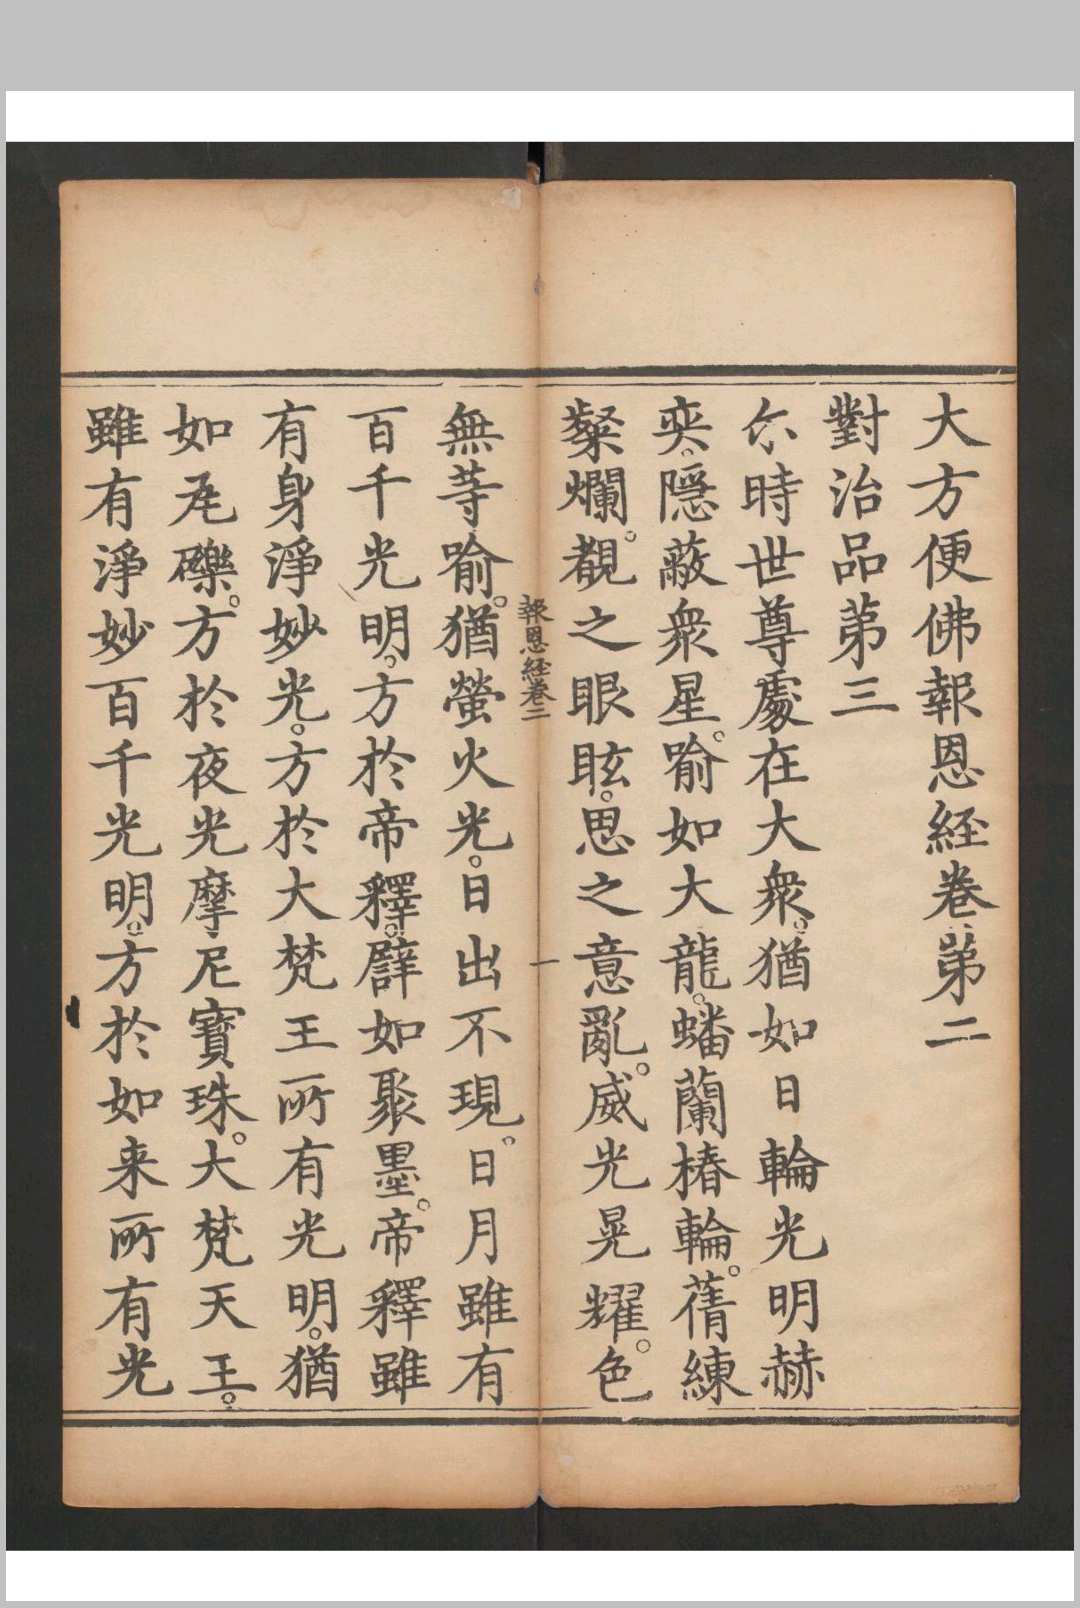 大方便佛報恩経巻苐二
對治品苐三
尒時世尊處在大衆。猶如日輪光明赫
奕。隱蔽衆星。喻如大龍。蟠蘭椿輪。蒨練
粲爛。覩之眼眩。思之意亂。威光晃耀。色
報恩経巻二
一
無䓁喻。猶螢火光。日出不現。日月雖有
百千光明。方於帝釋。譬如聚墨。帝釋雖
有身淨妙光。方於大梵王所有光明。猶
如瓦礫。方於夜光摩尼寶珠。大梵天王。
雖有淨妙百千光明。方於如来所有光